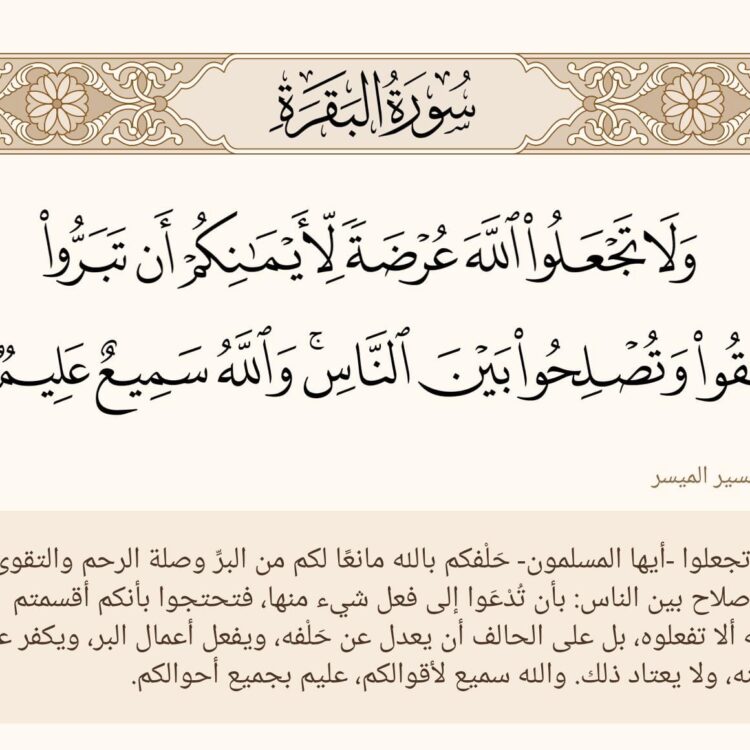 سُورَةُ البَقَرَةِ
وَلَا تَجْعَلُوا۟ ٱللَّهَ عُرْضَةً لِّأَيْمَـٰنِكُمْ أَن تَبَرُّوا۟
وَتُصْلِحُوا۟ بَيْنَ ٱلنَّاسِ ۚ وَٱللَّهُ سَمِيعٌ عَلِيمٌ
الميسر
تجعلوا -أيها المسلمون- حَلْفكم بالله مانعًا لكم من البرِّ وصلة الرحم والتقوى
بين الناس: بأن تُدْعَوا إلى فعل شيء منها، فتحتجوا بأنكم أقسمتم
ألا تفعلوه، بل على الحالف أن يعدل عن حَلْفه، ويفعل أعمال البر، ويكفر
ولا يعتاد ذلك. والله سميع لأقوالكم، عليم بجميع أحوالكم.